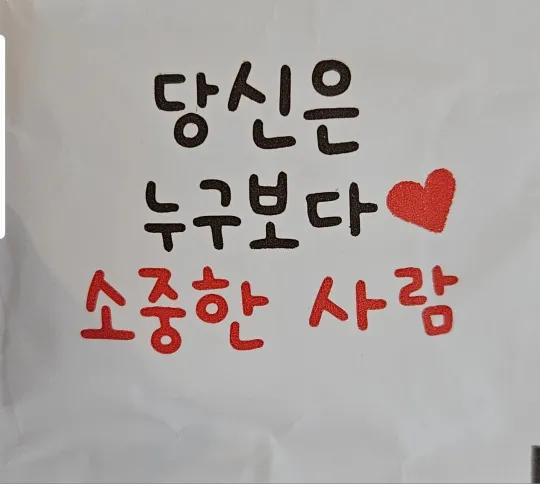 당신은
누구보다♥
소중한 사람